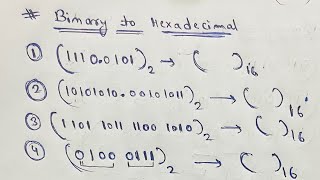 # Binary to Hexadecimal
① (1110.0101)₂ → ( )₁₆
② (10101010.00101011)₂ → ( )₁₆
③ (1101 1011 1100 1010)₂ → ( )₁₆
④ (0100 0111)₂ → ( )₁₆